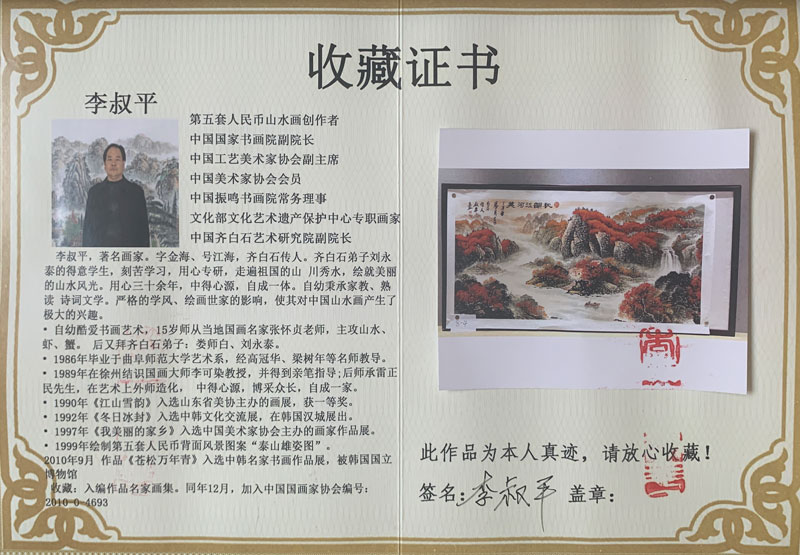 收藏证书
李叔平
第五套人民币山水画创作者
中国国家书画院副院长
中国工艺美术家协会副主席
中国美术家协会会员
中国振鸣书画院常务理事
文化部文化艺术遗产保护中心专职画家
中国齐白石艺术研究院副院长
李叔平，著名画家。字金海、号江海，齐白石传人。齐白石弟子刘永
泰的得意学生，刻苦学习，用心专研，走遍祖国的山 川秀水，绘就美丽
的山水风光。用心三十余年，中得心源，自成一体。自幼秉承家教、熟
读 诗词文学。严格的学风、绘画世家的影响，使其对中国山水画产生了
极大的兴趣。
·自幼酷爱书画艺术，15岁师从当地国画名家张怀贞老师，主攻山水、
虾、蟹。 后又拜齐白石弟子：娄师白、刘永泰。
·1986年毕业于曲阜师范大学艺术系，经高冠华、梁树年等名师教导。
·1989年在徐州结识国画大师李可染教授，并得到亲笔指导;后师承雷正
民先生，在艺术上外师造化， 中得心源，博采众长，自成一家。
·1990年《江山雪韵》入选山东省美协主办的画展，获一等奖。
·1992年《冬日冰封》入选中韩文化交流展，在韩国汉城展出。
·1997年《我美丽的家乡》入选中国美术家协会主办的画家作品展。
·1999年绘制第五套人民币背面风景图案“泰山雄姿图”。
2010年9月 作品《苍松万年青》入选中韩名家书画作品展，被韩国国立
博物馆
收藏：入编作品名家画集。同年12月，加入中国国画家协会编号：
2010-0-4693
此作品为本人真迹，请放心收藏！
签名：李叔平 盖章：